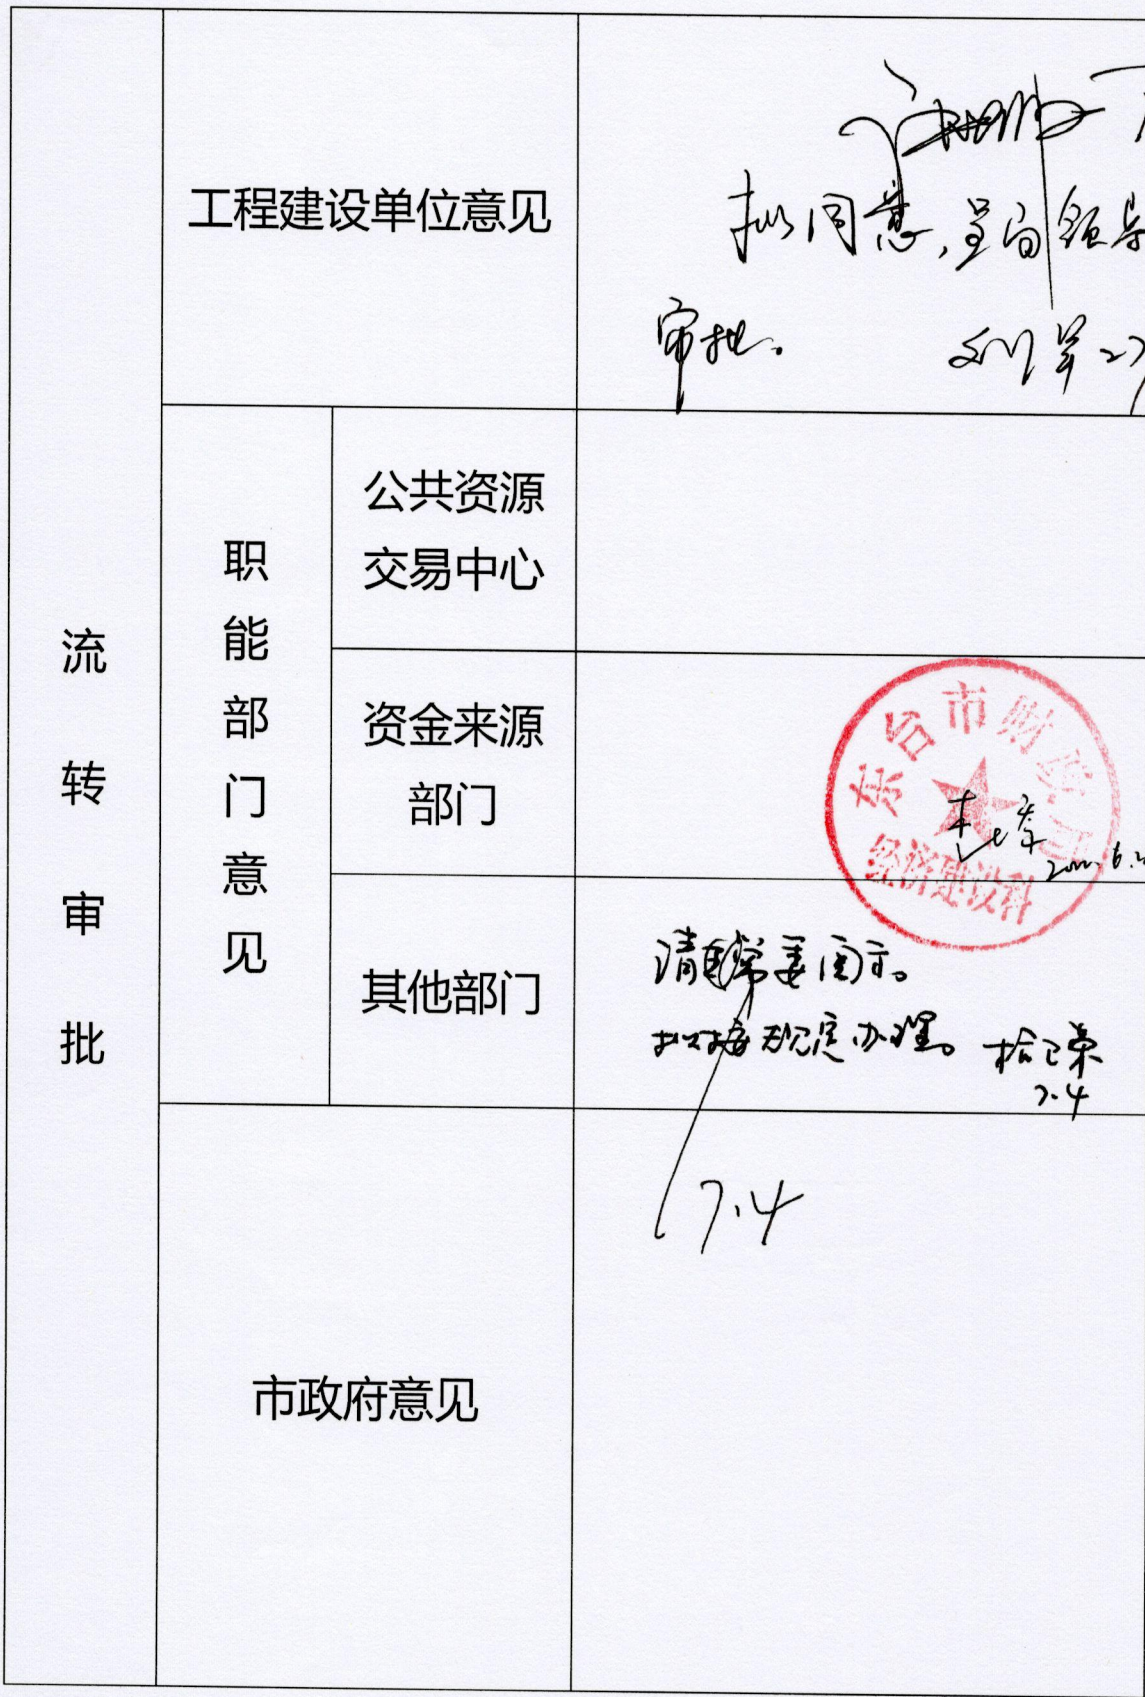 流转审批
工程建设单位意见
拟同意,呈局领导
审批。
职能部门意见
公共资源
交易中心
资金来源
部门
东台市财政局
经济建设科
其他部门
请 常委阅示。
拟按规定办理。
7.4
7.4
市政府意见